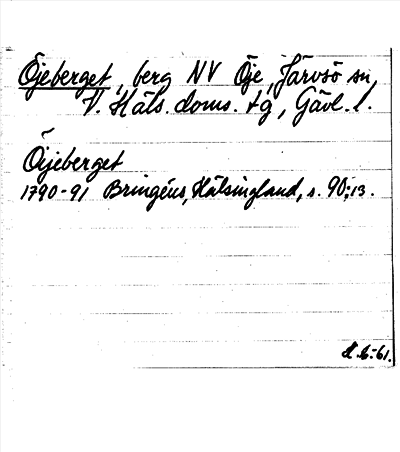 Öjeberget, berg NV Öje, Järvsö sn,
V. Häls. doms. tg, Gävl. l.
Öijeberget
1790-91 Bringéus, Hälsingland, s. 90; 13.